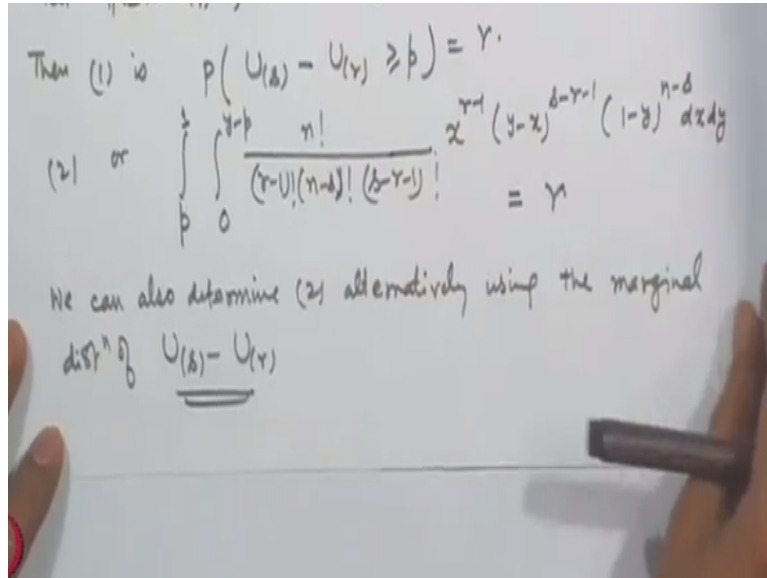 Then (1) is P( U(s) − U(r) ≥ p ) = γ.
(2) or ∫_p^1 ∫_0^{y-p} n! / (r-1)! (n-s)! (s-r-1)! x^{r-1} (y-x)^{s-r-1} (1-y)^{n-s} dx dy
= γ
We can also determine (2) alternatively using the marginal
distⁿ of U(s) − U(r)